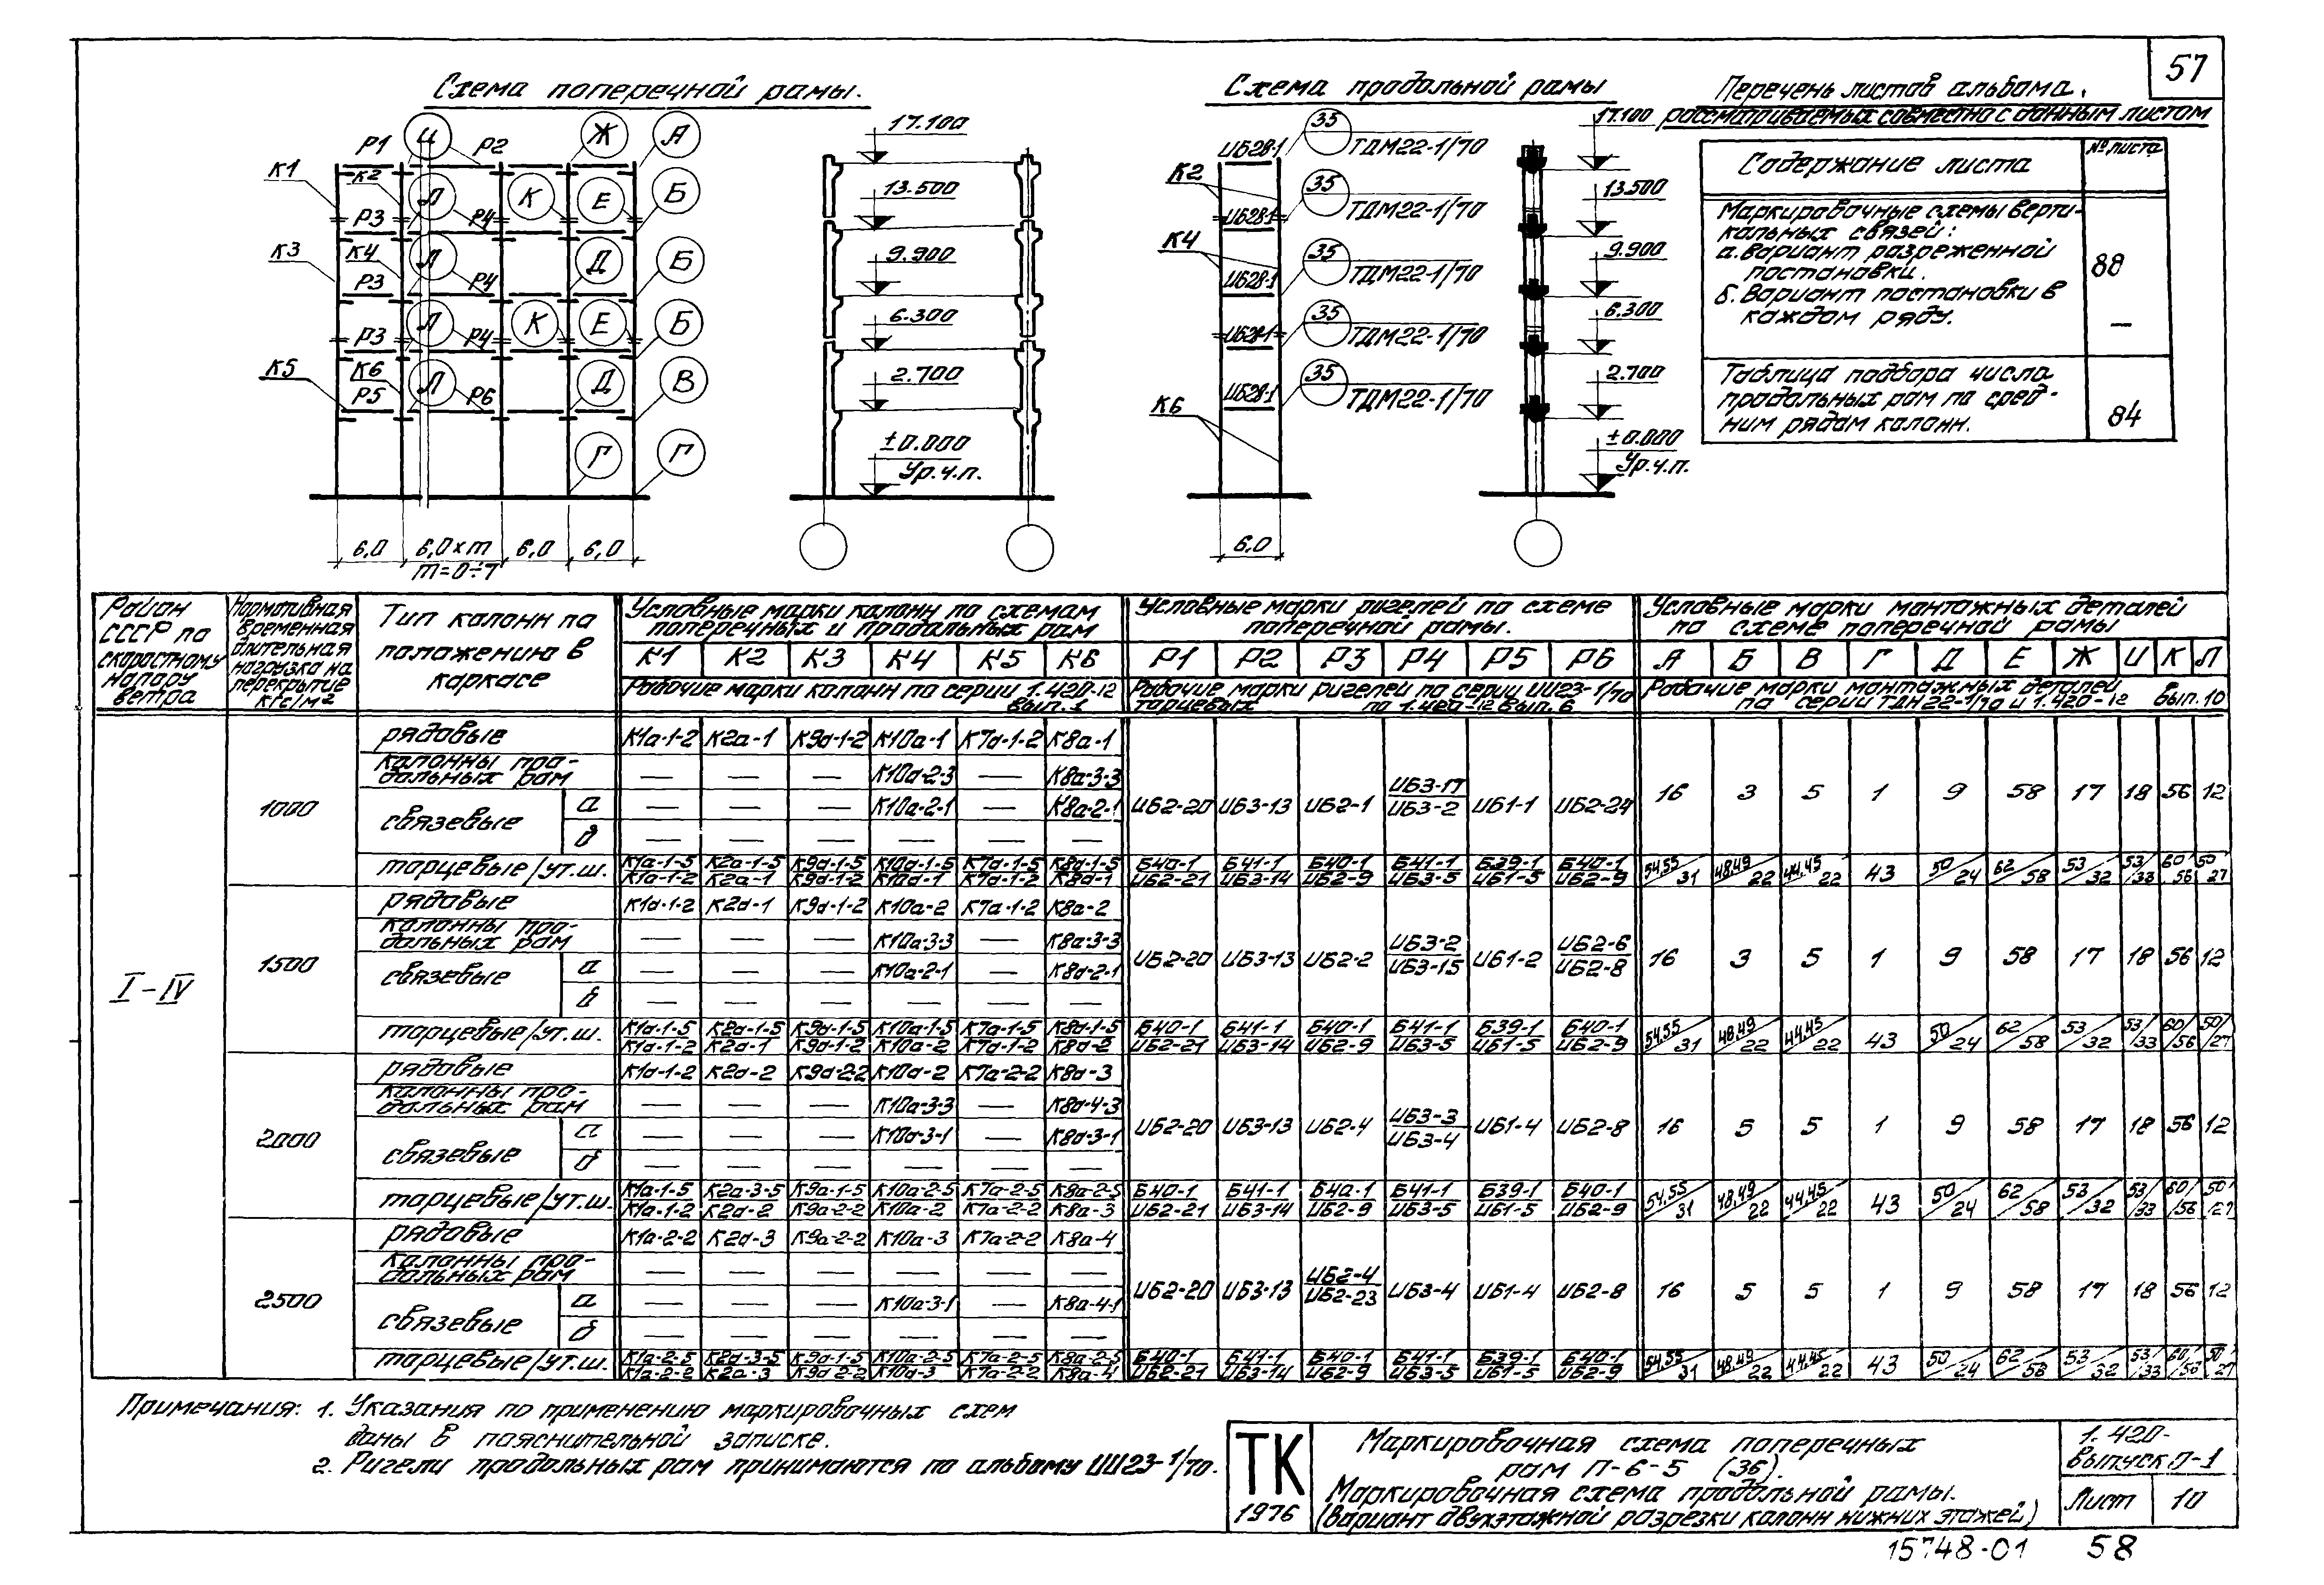 57
Схема поперечной рамы.
Схема продольной рамы
Перечень листов альбома,
рассматриваемых совместно с данным листом
Содержание листа № листа
Маркировочные схемы верти-
кальных связей:
а. Вариант разреженной
постановки. 88
б. Вариант постановки в
каждом ряду. —
Таблица подбора числа
продольных рам по сред-
ним рядам колонн. 84
Р1 И Р2 Ж А
К1 К2 Л К Е Б
Р3 Р4
К3 К4 Л Д Б
Р3 Р4
Л К Е Б
Р3 Р4
К5 К6 Л Д В
Р5 Р6
Г Г
6,0 6,0×m 6,0 6,0
m=0÷7
17.100
13.500
9.900
6.300
2.700
±0.000
Ур.ч.п.
ИБ28-1 35 ТДМ22-1/70
К2
ИБ28-1 35 ТДМ22-1/70
К4
ИБ28-1 35 ТДМ22-1/70
ИБ28-1 35 ТДМ22-1/70
ИБ28-1 35 ТДМ22-1/70
К6
6,0
17.100
13.500
9.900
6.300
2.700
±0.000
Ур.ч.п.
Район СССР по скоростному напору ветра
Нормативная временная длительная нагрузка на перекрытие кгс/м²
Тип колонн по положению в каркасе
Условные марки колонн по схемам поперечных и продольных рам
К1 К2 К3 К4 К5 К6
Рабочие марки колонн по серии 1.420-12 вып. 1
Условные марки ригелей по схеме поперечной рамы.
Р1 Р2 Р3 Р4 Р5 Р6
Рабочие марки ригелей по серии ИИ23-1/70 торцевых по 1.420-12 вып. 6
Условные марки монтажных деталей по схеме поперечной рамы
А Б В Г Д Е Ж И К Л
Рабочие марки монтажных деталей по серии ТДМ22-1/70 и 1.420-12 вып. 10
I-IV
1000
рядовые К1а-1-2 К2а-1 К9а-1-2 К10а-1 К7а-1-2 К8а-1
колонны про-
дольных рам — — — К10а-2-3 — К8а-3-3
связевые а — — — К10а-2-1 — К8а-2-1
б — — — — — —
ИБ2-20 ИБ3-13 ИБ2-1 ИБ3-17/ИБ3-2 ИБ1-1 ИБ2-24 16 3 5 1 9 58 17 18 56 12
торцевые/ут.ш. К1а-1-5/К1а-1-2 К2а-1-5/К2а-1 К9а-1-5/К9а-1-2 К10а-1-5/К10а-1 К7а-1-5/К7а-1-2 К8а-1-5/К8а-1 Б40-1/ИБ2-21 Б41-1/ИБ3-14 Б40-1/ИБ2-9 Б41-1/ИБ3-5 Б39-1/ИБ1-5 Б40-1/ИБ2-9 54,55/31 48,49/22 44,45/22 43 50/24 62/58 53/32 53/33 60/56 50/27
1500
рядовые К1а-1-2 К2а-1 К9а-1-2 К10а-2 К7а-1-2 К8а-2
колонны про-
дольных рам — — — К10а-3-3 — К8а-3-3
связевые а — — — К10а-2-1 — К8а-2-1
б — — — — — —
ИБ2-20 ИБ3-13 ИБ2-2 ИБ3-2/ИБ3-15 ИБ1-2 ИБ2-6/ИБ2-8 16 3 5 1 9 58 17 18 56 12
торцевые/ут.ш. К1а-1-5/К1а-1-2 К2а-1-5/К2а-1 К9а-1-5/К9а-1-2 К10а-1-5/К10а-2 К7а-1-5/К7а-1-2 К8а-1-5/К8а-2 Б40-1/ИБ2-21 Б41-1/ИБ3-14 Б40-1/ИБ2-9 Б41-1/ИБ3-5 Б39-1/ИБ1-5 Б40-1/ИБ2-9 54,55/31 48,49/22 44,45/22 43 50/24 62/58 53/32 53/33 60/56 50/27
2000
рядовые К1а-1-2 К2а-2 К9а-2-2 К10а-2 К7а-2-2 К8а-3
колонны про-
дольных рам — — — К10а-3-3 — К8а-4-3
связевые а — — — К10а-3-1 — К8а-3-1
б — — — — — —
ИБ2-20 ИБ3-13 ИБ2-4 ИБ3-3/ИБ3-4 ИБ1-4 ИБ2-8 16 5 5 1 9 58 17 18 56 12
торцевые/ут.ш. К1а-1-5/К1а-1-2 К2а-3-5/К2а-2 К9а-1-5/К9а-2-2 К10а-2-5/К10а-2 К7а-2-5/К7а-2-2 К8а-2-5/К8а-3 Б40-1/ИБ2-21 Б41-1/ИБ3-14 Б40-1/ИБ2-9 Б41-1/ИБ3-5 Б39-1/ИБ1-5 Б40-1/ИБ2-9 54,55/31 48,49/22 44,45/22 43 50/24 62/58 53/32 53/33 60/56 50/27
2500
рядовые К1а-2-2 К2а-3 К9а-2-2 К10а-3 К7а-2-2 К8а-4
колонны про-
дольных рам — — — — — —
связевые а — — — К10а-3-1 — К8а-4-1
б — — — — — —
ИБ2-20 ИБ3-13 ИБ2-4/ИБ2-23 ИБ3-4 ИБ1-4 ИБ2-8 16 5 5 1 9 58 17 18 56 12
торцевые/ут.ш. К1а-2-5/К1а-2-2 К2а-3-5/К2а-3 К9а-1-5/К9а-2-2 К10а-2-5/К10а-3 К7а-2-5/К7а-2-2 К8а-2-5/К8а-4 Б40-1/ИБ2-21 Б41-1/ИБ3-14 Б40-1/ИБ2-9 Б41-1/ИБ3-5 Б39-1/ИБ1-5 Б40-1/ИБ2-9 54,55/31 48,49/22 44,45/22 43 50/24 62/58 53/32 53/33 60/56 50/27
Примечания: 1. Указания по применению маркировочных схем
даны в пояснительной записке.
2. Ригели продольных рам принимаются по альбому ИИ23-1/70.
ТК
1976
Маркировочная схема поперечных
рам П-6-5 (36).
Маркировочная схема продольной рамы.
(Вариант двухэтажной разрезки колонн нижних этажей)
1.420-
выпуск 0-1
Лист 10
15748-01 58